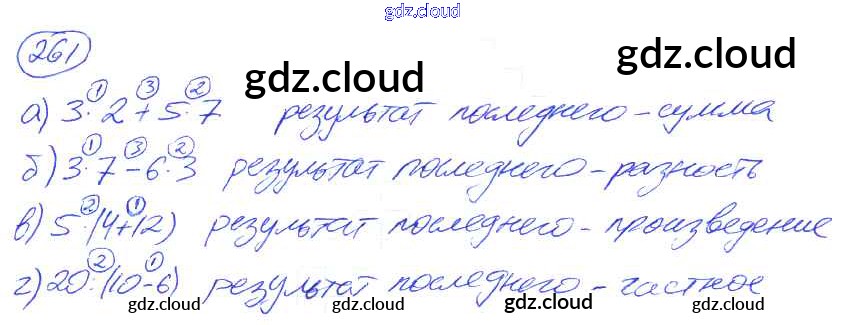 gdz.cloud
261
gdz.cloud gdz.cloud
① ③ ②
а) 3·2+5·7 результат последнего – сумма
① ③ ②
б) 3·7–6·3 результат последнего – разность
② ①
в) 5·(4+12) результат последнего – произведение
② ①
г) 20:(10–6) результат последнего – частное
gdz.cloud gdz.cloud gdz.cloud